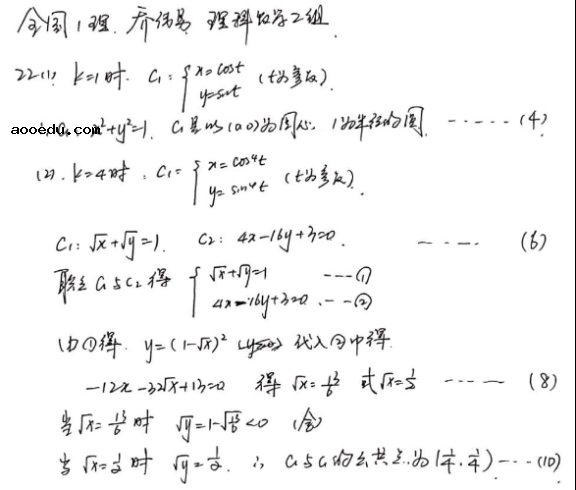 全国1理. 乔伟号 理科数学2组.
22.(1) k=1时. C₁: { x=cost y=sint (t为参数).
aooedu.com x²+y²=1. C₁是以(0,0)为圆心, 1为半径的圆. ----- (4)
(2). k=4时: C₁= { x=cos⁴t y=sin⁴t (t为参数).
C₁: √x+√y=1. C₂: 4x-16y+3=0. ---- (6)
联立C₁与C₂得 { √x+√y=1 ---① 4x-16y+3=0 ---②
由①得. y=(1-√x)² 代入②中得.
-12x-32√x+13=0 得 √x=13/6 或√x=1/2 ---- (8)
当√x=13/6 时 √y=1-√13/6<0 (舍)
当√x=1/2 时 √y=1/2. ∴ C₁与C₂的公共点为(1/4, 1/4) --- (10)